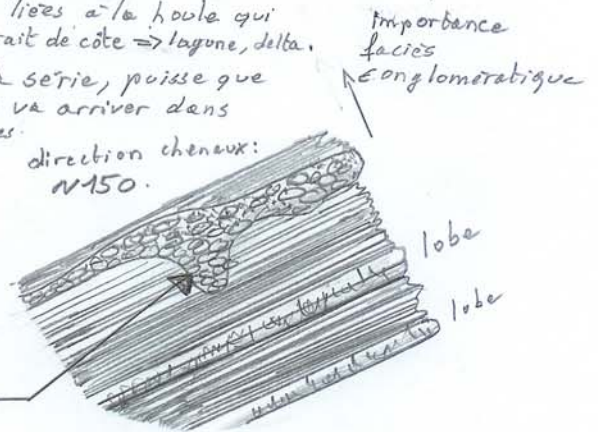 liées à la houle qui
rait de côte => lagune, delta.
a série, puisse que
va arriver dans
es.
direction chenaux:
N150.
importance
faciès
conglomératique
lobe
lobe